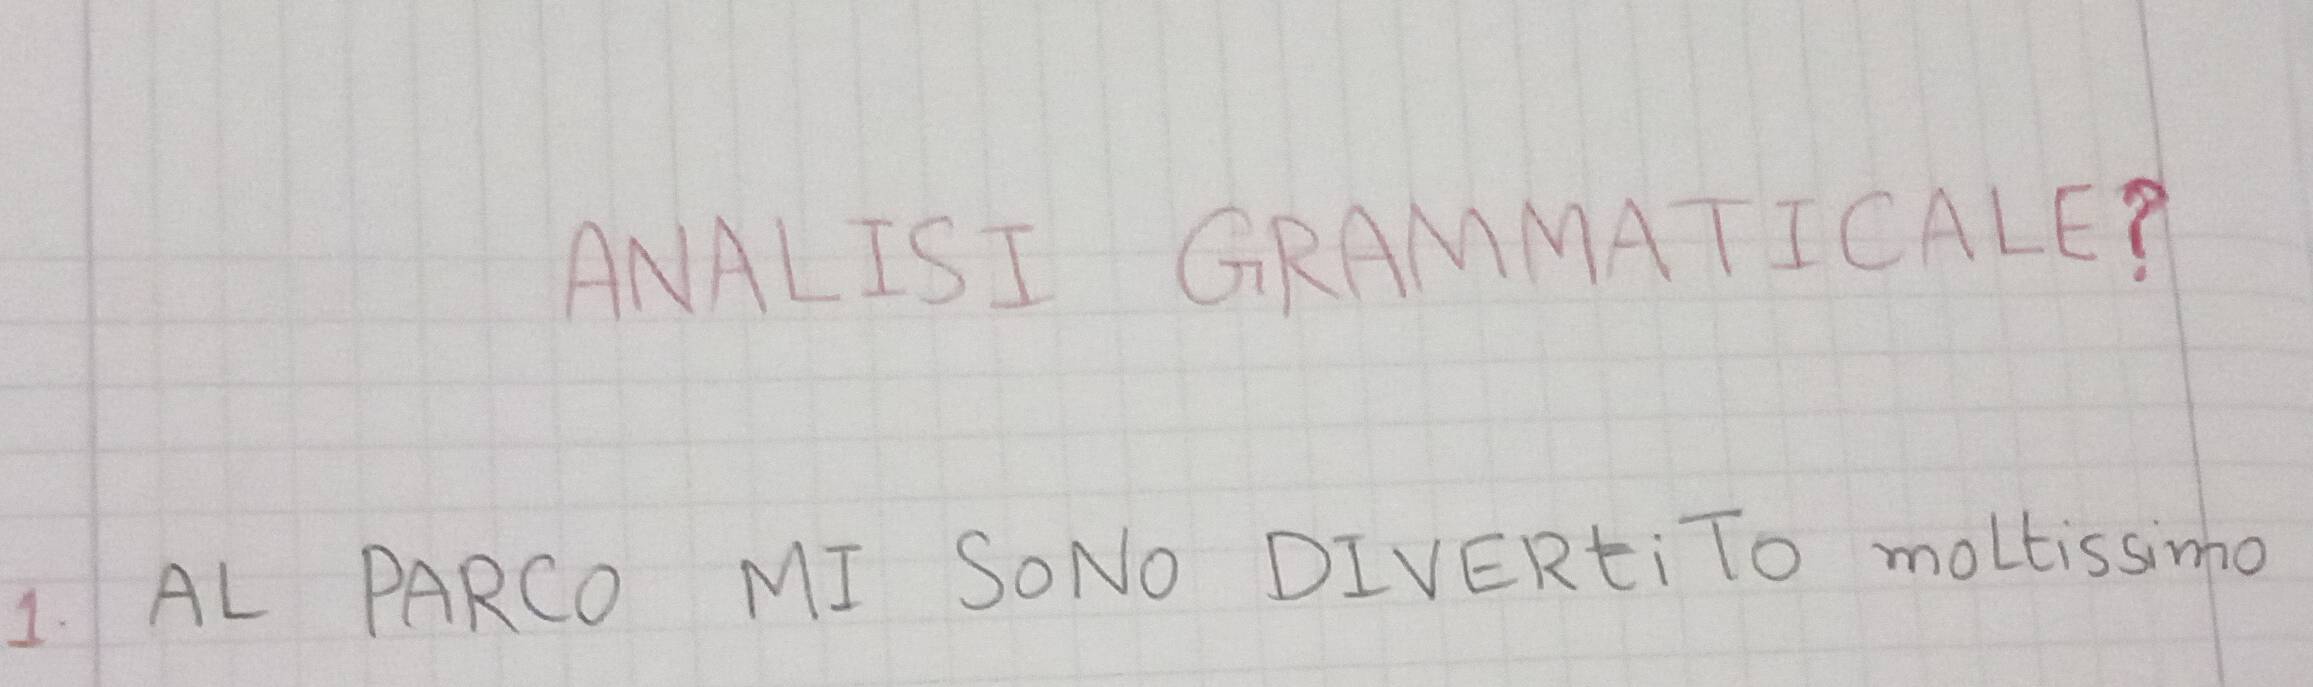 ANALISI GRAMMATICALE?
1. AL PARCO MI SONO DIVERtiTO moLtissimo